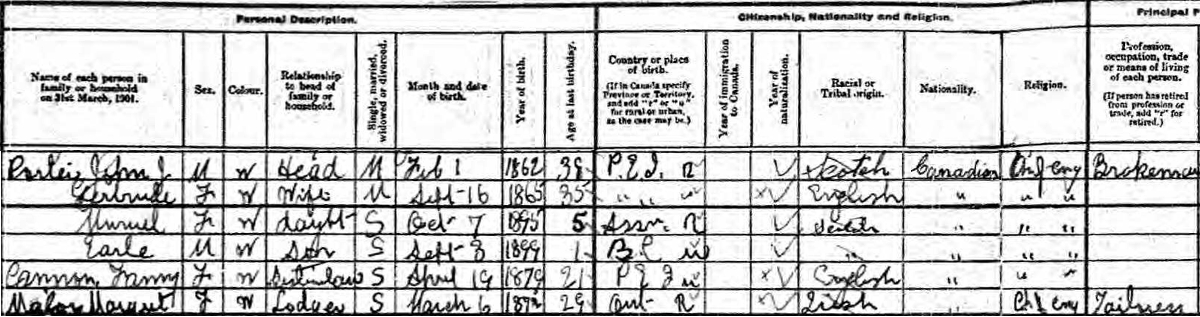 Personal Description. Citizenship, Nationality and Religion. Principal P
Name of each person in family or household on 31st March, 1901. Sex. Colour. Relationship to head of family or household. Single, married, widowed or divorced. Month and date of birth. Year of birth. Age at last birthday. Country or place of birth. (If in Canada specify Province or Territory, and add "r" or "u" for rural or urban, as the case may be.) Year of immigration to Canada. Year of naturalization. Racial or Tribal origin. Nationality. Religion. Profession, occupation, trade or means of living of each person. (If person has retired from profession or trade, add "r" for retired.)
John J. M W Head M Feb 1 1862 38 P.E.I. R Scotch Canadian Ch of Eng
Gertrude F W Wife M Sept 16 1865 35 " " " English " "
Muriel F W daught S Oct 7 1895 5 Assa. R Scotch " " "
Earle M W Son S Sept 8 1899 1 B.C. " " " "
Cannon, Fanny F W Sisterinlaw S April 19 1879 21 P.E.I. English " " "
Margaret F W Lodger S March 6 29 Ont R Irish Ch of Eng Tailoress